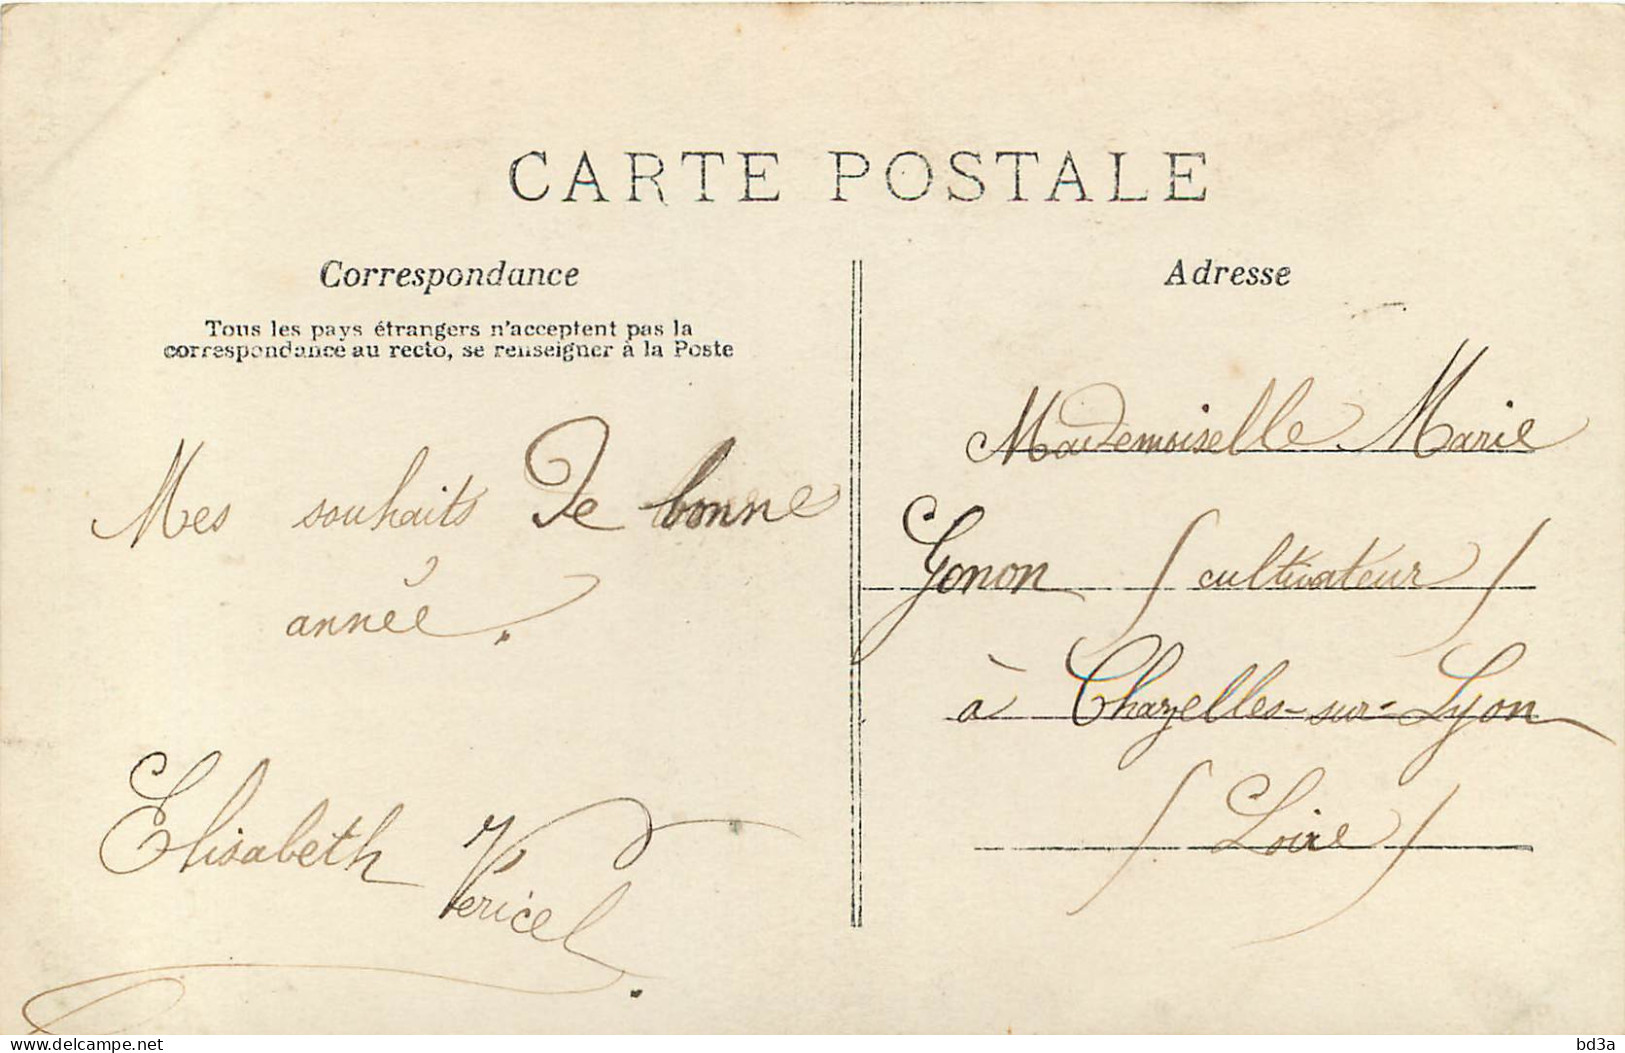 CARTE POSTALE
Correspondance
Tous les pays étrangers n'acceptent pas la
correspondance au recto, se renseigner à la Poste
Mes souhaits de bonne
année.
Elisabeth Vericel
Adresse
Mademoiselle Marie
Gonon (cultivateur)
à Chazelles-sur-Lyon
(Loire)
www.delcampe.net
bd3a